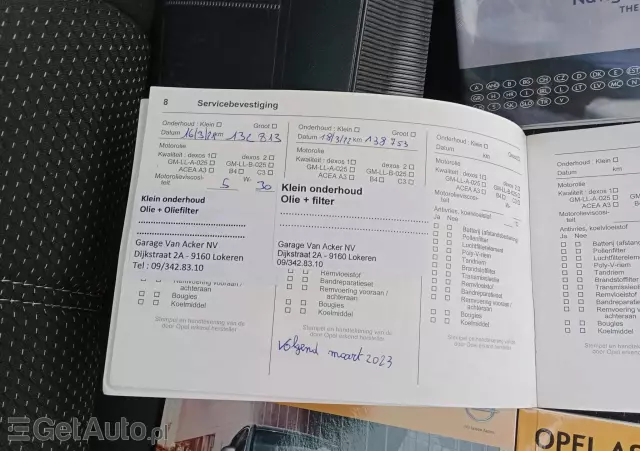 8 Servicebevestiging
Onderhoud : Klein ☐ Groot ☐
Datum 16/3/
Motorolie
Kwaliteit : dexos 1☐ dexos 2 ☐
GM-LL-A-025 ☐ GM-LL-B-025 ☐
ACEA A3 ☐ B4 ☐ C3 ☐
Motorolieviscosi-
teit 5 W- 30
Klein onderhoud
Olie + Oliefilter
Garage Van Acker NV
Dijkstraat 2A - 9160 Lokeren
Tel : 09/342.83.10
Remvoering vooraan /
achteraan
☐ ☐ Bougies
☐ ☐ Koelmiddel
Stempel en handtekening van de
door Opel erkend hersteller
Onderhoud : Klein ☐ Groot ☐
Datum 18/3/22 km 138 753
Motorolie
Kwaliteit : dexos 1☐ dexos 2 ☐
GM-LL-A-025 ☐ GM-LL-B-025 ☐
ACEA A3 ☐ B4 ☐ C3 ☐
Klein onderhoud
Olie + filter
Garage Van Acker NV
Dijkstraat 2A - 9160 Lokeren
09/342.83.10
☐ ☐ Remvloeistof
☐ ☐ Bandreparatieset
☐ ☐ Remvoering vooraan /
achteraan
☐ ☐ Bougies
☐ ☐ Koelmiddel
Stempel en handtekening van de
door Opel erkend hersteller
Volgend maart 2023
Onderhoud : Klein ☐ Groot ☐
Datum km
Motorolie
Kwaliteit : dexos 1☐ dexos 2 ☐
GM-LL-A-025 ☐ GM-LL-B-025 ☐
ACEA A3 ☐ B4 ☐ C3 ☐
Motorolieviscosi-
teit
Antivries, koelvloeistof
Ja Nee
☐ ☐ Batterij (afstandsbediening)
☐ ☐ Pollenfilter
☐ ☐ Luchtfilterelement
☐ ☐ Poly-V-riem
☐ ☐ Tandriem
☐ ☐ Brandstoffilter
☐ ☐ Transmissieolie
☐ ☐ Remvloeistof
☐ ☐ Bandreparatieset
☐ ☐ Remvoering vooraan /
achteraan
☐ ☐ Bougies
☐ ☐ Koelmiddel
Stempel en handtekening van de
door Opel erkend hersteller
Onderhoud : Klein ☐
Datum
Motorolie
Kwaliteit : dexos 1☐
GM-LL-A-025 ☐
ACEA A3 ☐
Motorolieviscosi-
teit
Antivries, koelvloeistof
Ja Nee
☐ ☐ Batterij
☐ ☐ Pollenfilter
☐ ☐ Luchtfilterelement
☐ ☐ Poly-V-riem
☐ ☐ Tandriem
☐ ☐ Brandstoffilter
☐ ☐ Transmissieolie
☐ ☐ Remvloeistof
☐ ☐ Bandreparatieset
☐ ☐ Remvoering
achteraan
☐ ☐ Bougies
☐ ☐ Koelmiddel
Stempel en
door Opel
THE
OPEL AS
GetAuto.pl